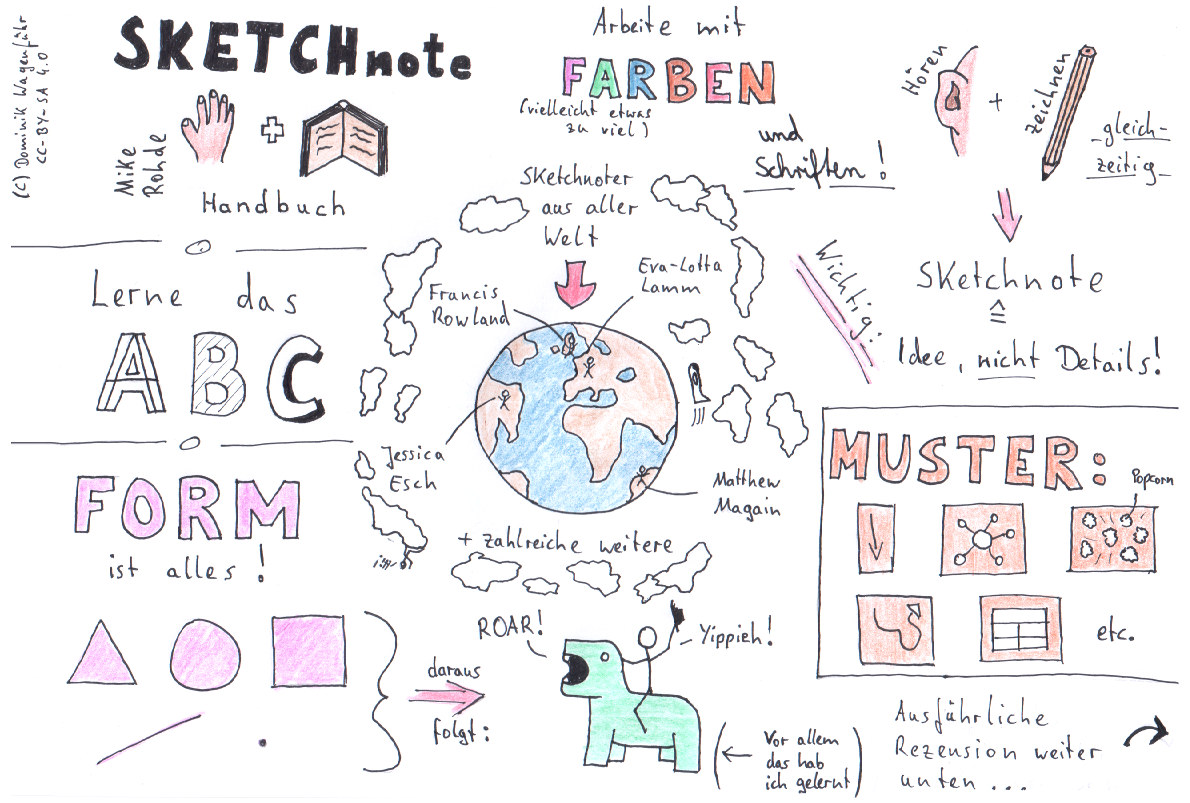 (C) Dominik Wagenführ
CC-BY-SA 4.0
SKETCHnote
Mike
Rohde
+
Handbuch
Lerne das
ABC
FORM
ist alles!
Arbeite mit
FARBEN
(vielleicht etwas
zu viel)
und
Schriften!
Hören
+
zeichnen
gleich-
zeitig
Sketchnote
≙
Wichtig:
Idee, nicht Details!
Sketchnoter
aus aller
Welt
Francis
Rowland
Eva-Lotta
Lamm
Jessica
Esch
Matthew
Magain
+ zahlreiche weitere
MUSTER:
Popcorn
etc.
daraus
folgt:
ROAR!
Yippieh!
(← Vor allem
das hab
ich gelernt)
Ausführliche
Rezension weiter
unten ...